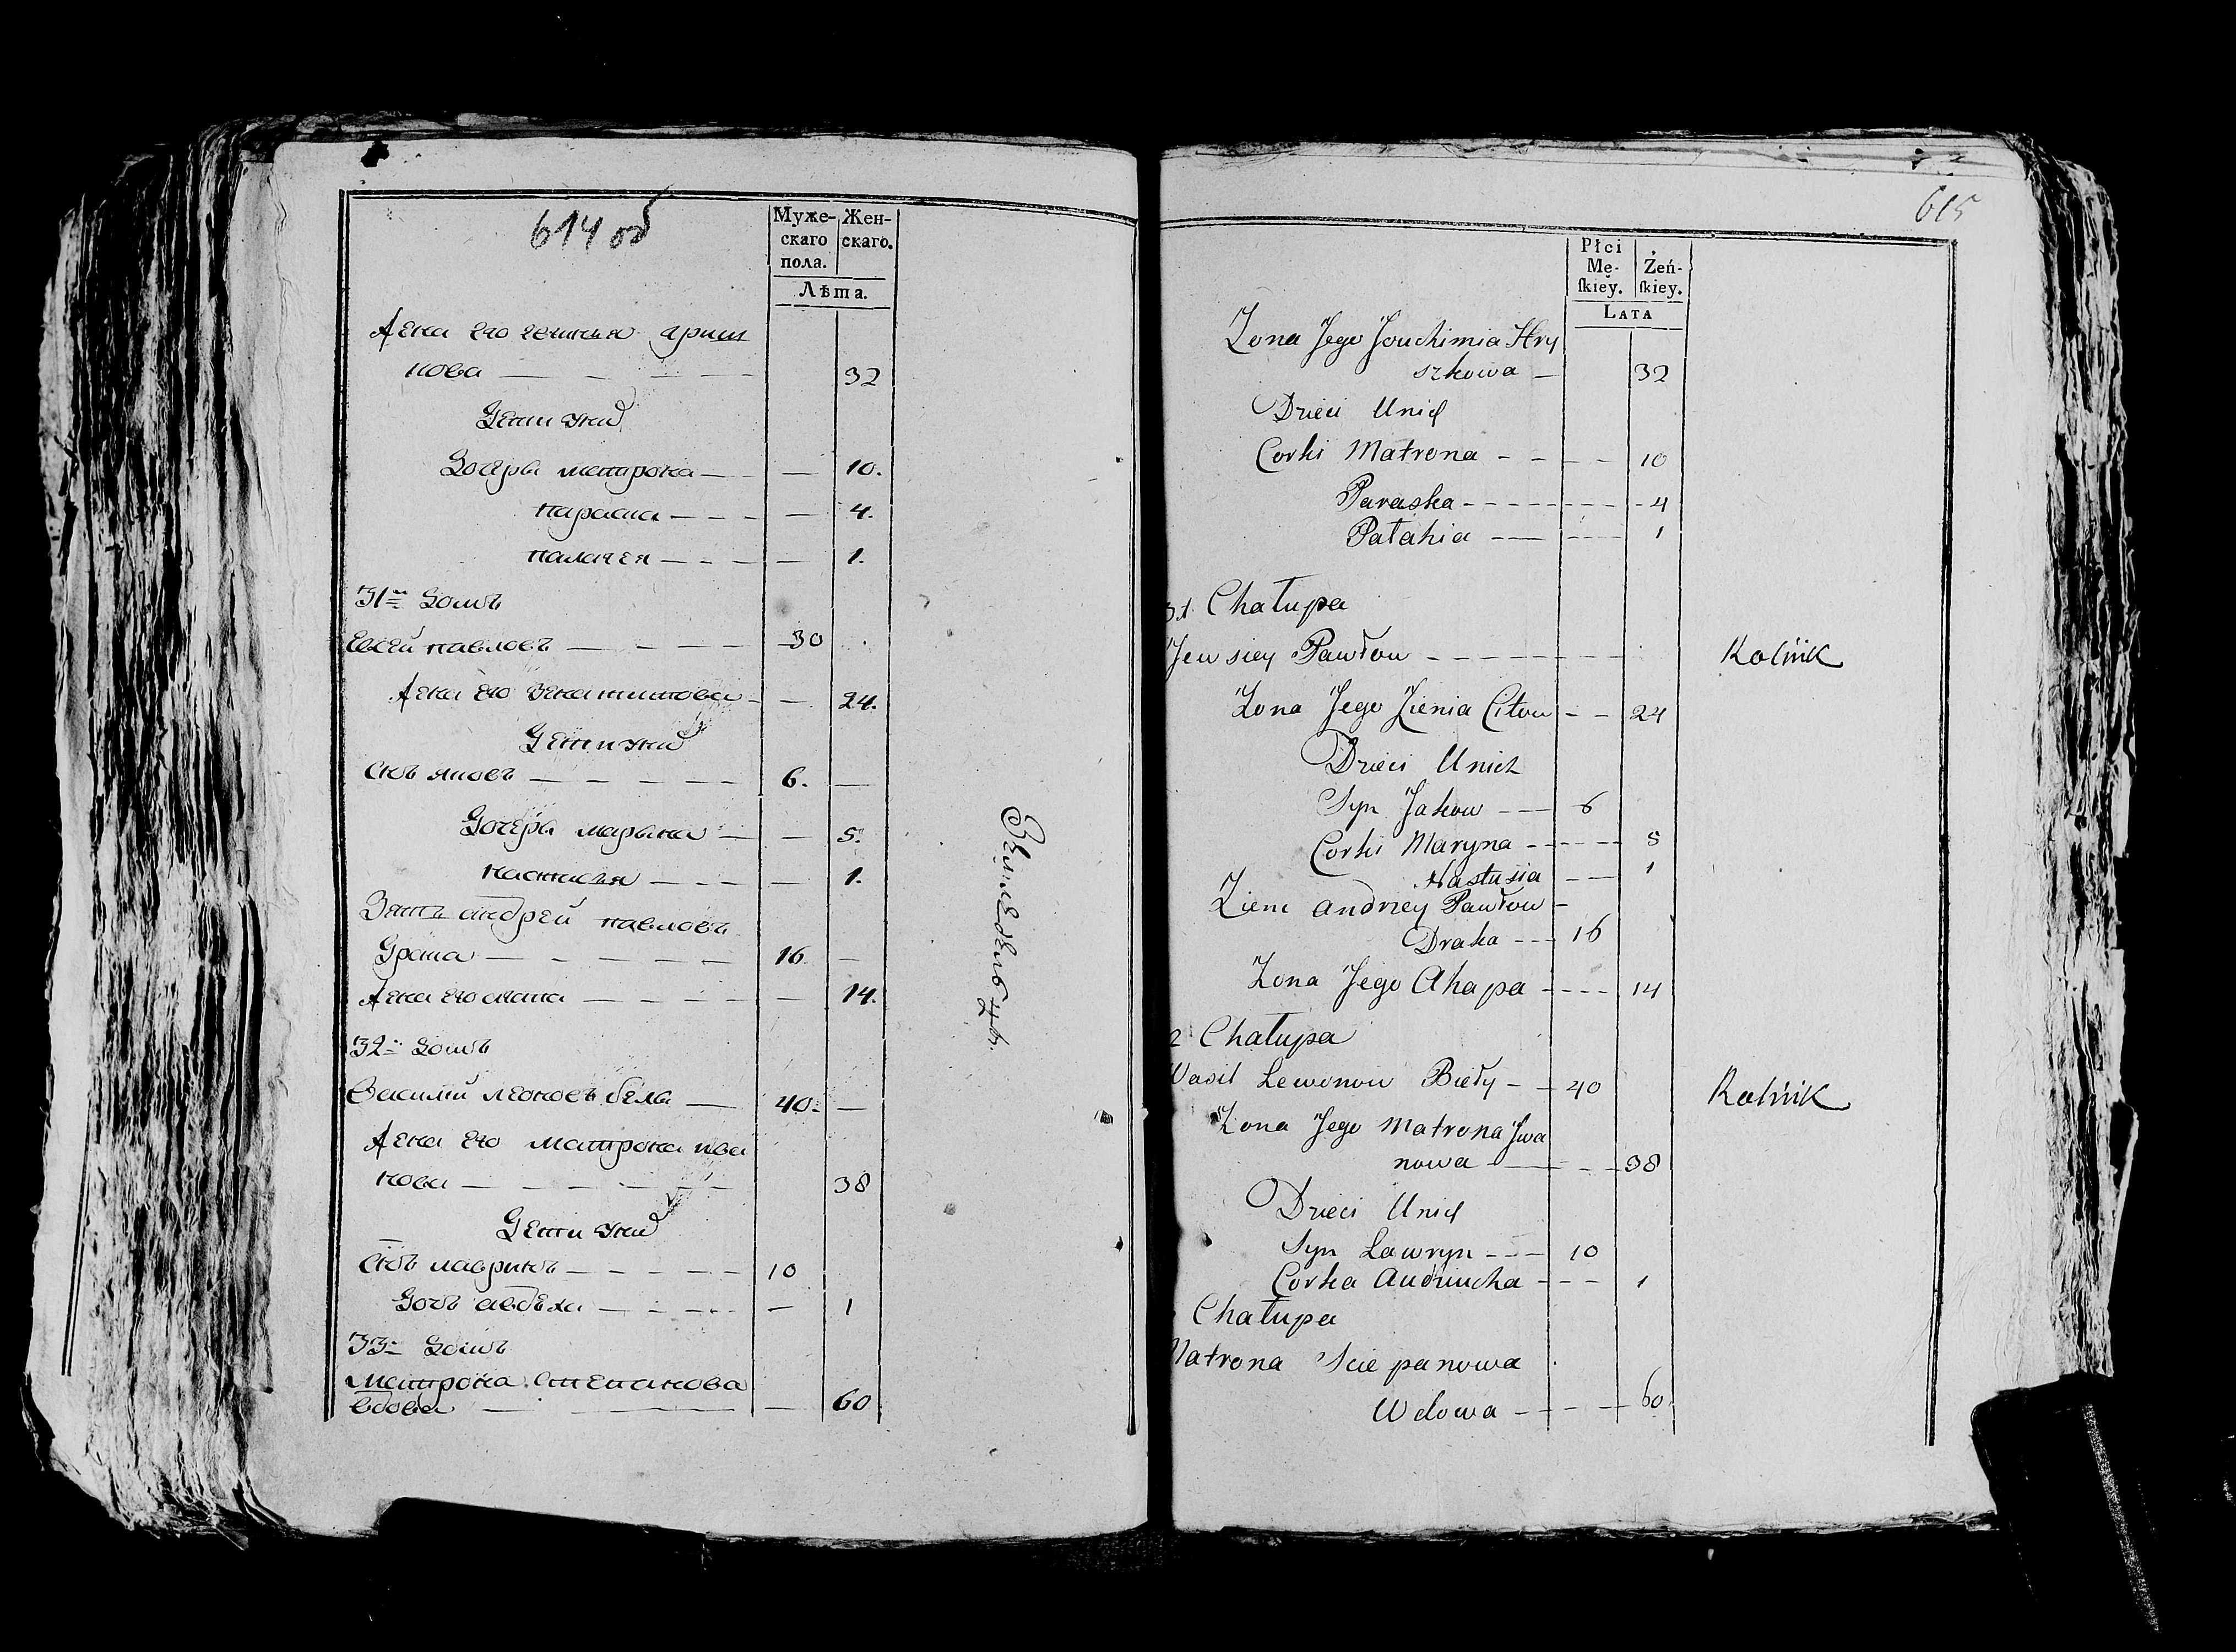 614 об
Муже-
скаго
пола.
Жен-
скаго.
Лѣта.
Жена его
нова — — — — 32
Дети унид
Дочерь матрона — — — 10.
параска — — — — 4.
палагея — — — — 1.
31 домъ
Евсей павловъ — — — — 30
Жена его зеня титова — — 24.
Дети унид
снъ яковъ — — — — — 6. —
Дочерь марына — — 5.
настасья — — — — 1.
Зять андрей павловъ
Драка — — — — — 16. —
Жена его агапа — — — — — 14.
32 домъ
Василий леоновъ белы — 40. —
Жена его матрона ива
нова — — — — — 38
Дети унид
снъ лавринъ — — — — — 10
Дочь авдѣха — — — — — 1
33 домъ
Матрона степанова
вдова — — — — 60
Земледѣлецъ.
615
Płci
Mę-
ſkiey.
Żeń-
ſkiey.
LATA
Zona Jego Jouchimia Hry
szkowa — 32
Dzieci Unich
Corki Matrona - - - - 10
Paraska - - - - - - - - 4
Pałahia - - - - - 1
31 Chałupa
Jewsiey Pawłow - - - - - - - - Rolnik
Zona Jego Zienia Citow - - 24
Dzieci Unich
Syn Jakow - - - 6
Corki Maryna - - - - - 5
Nastusia - - - 1
Zienc Andrzey Pawłow -
Draka - - - 16
Zona Jego Ahapa - - - - 14
2 Chałupa
Wasil Lewonow Bieły - - 40 Rolnik
Zona Jego Matrona Jwa
nowa - - - - 38
Dzieci Unich
Syn Lawryn - - - 10
Corka - - - 1
Chałupa
Matrona Sciepanowa
Wdowa - - - - 60